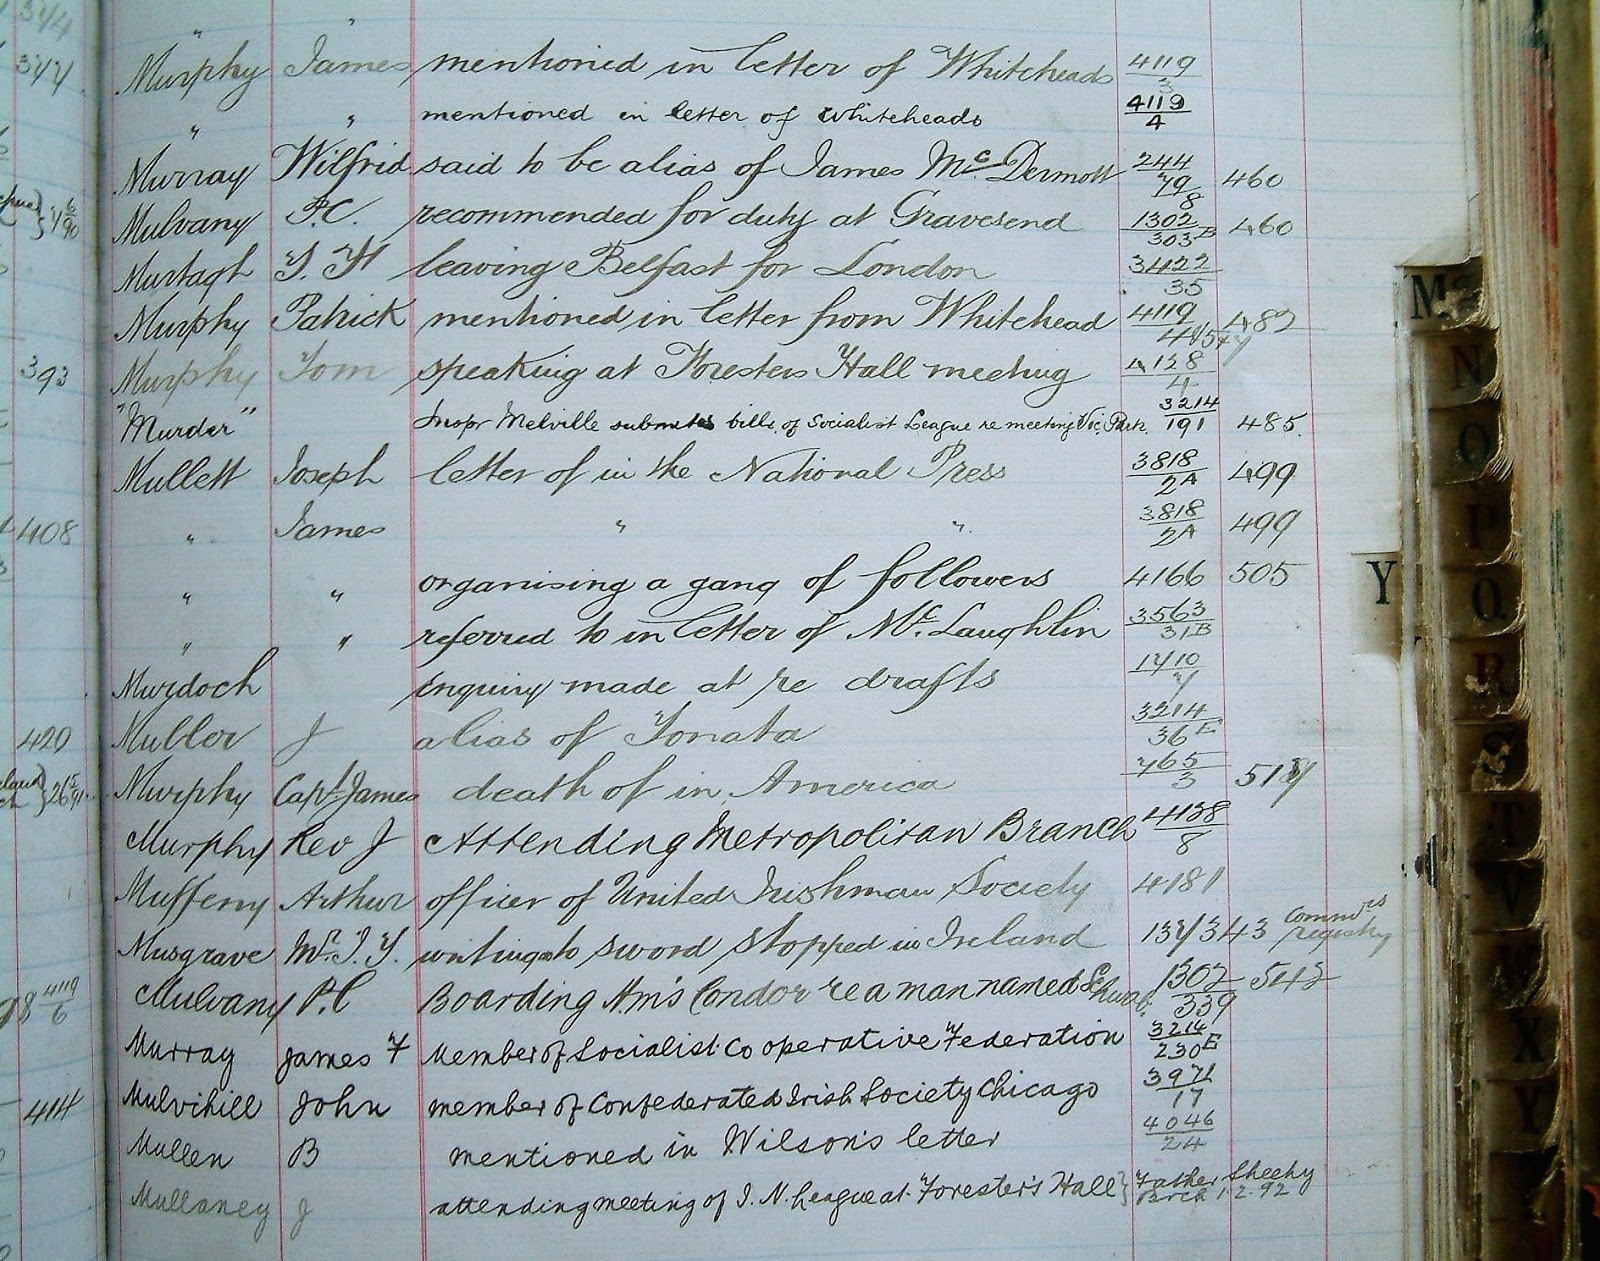 344
" "
377 Murphy James mentioned in letter of Whiteheads 4119/3
" " mentioned in letter of Whiteheads 4119/4
Murray Wilfrid said to be alias of James McDermott 244/79/8 460
Mulvany P.C. recommended for duty at Gravesend 1302/303B 460
Murtagh leaving Belfast for London 3422/35
Murphy Patrick mentioned in letter from Whitehead 4119 482
393 Murphy Tom speaking at Foresters Hall meeting 4128/4
"Murder" Inspr Melville submits bills of Socialist League re meeting Vic. Park 3214/191 485.
Mullett Joseph letter of in the National Press 3818/2A 499
408 " James " " 3818/2A 499
" " organising a gang of followers 4166 505
" " referred to in letter of McLaughlin 3563/31B
Murdoch enquiry made at re drafts 1710/7
420 Muller J alias of Tonata 3214/36E
Murphy Capt. James death of in America 765/3 517
Murphy Rev J Attending Metropolitan Branch 4138/8
Mufferny Arthur officer of United Irishman Society 4181
Musgrave Mr. writing to sword stopped in Ireland 137343 registry
4119/6 Mulvany P.C Boarding H.m's Condor re a man named 1302/339 542
Murray James F Member of Socialist Co operative Federation 3214/230E
414 Mulvihill John member of Confederated Irish Society Chicago 3971/17
Mullen B mentioned in Wilson's letter 4046/24
Mullaney J attending meeting of I. N. League at Forester's Hall } Father Sheehy
1.2.92
M
N
O
P
Y
Q
R
S
T
V
W
X
Y